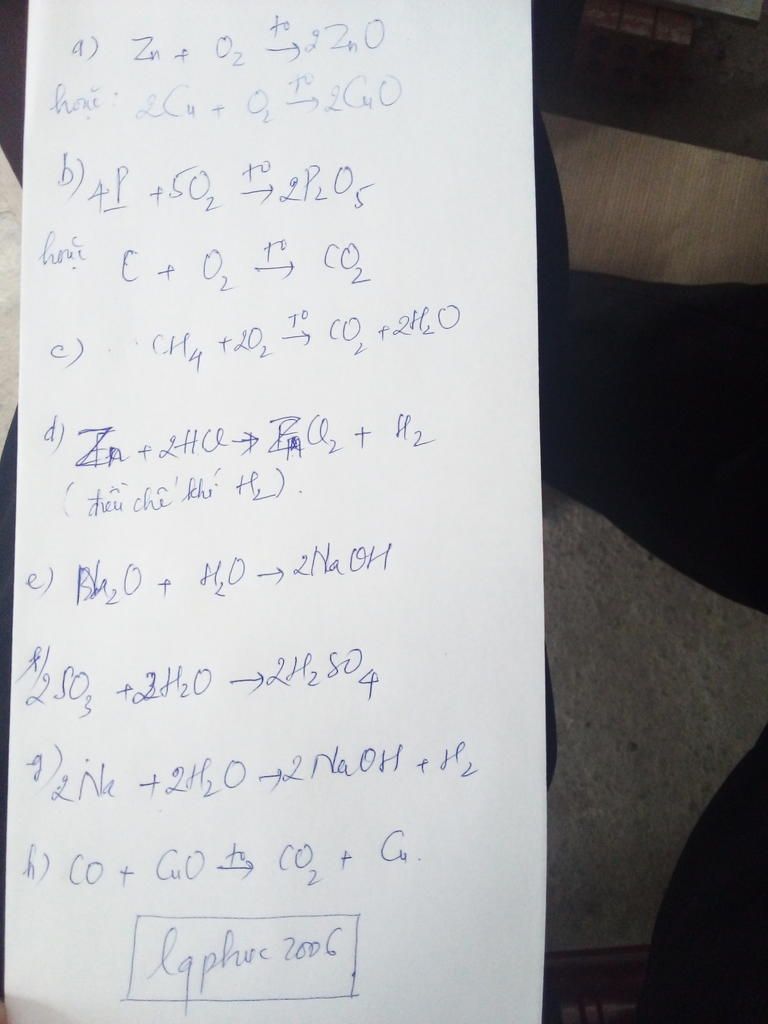 a) Zn + O₂ →t° 2ZnO
hoặc: 2Cu + O₂ →t° 2CuO
b) 4P + 5O₂ →t° 2P₂O₅
hoặc C + O₂ →t° CO₂
c) CH₄ + 2O₂ →t° CO₂ + 2H₂O
d) Zn + 2HCl → ZnCl₂ + H₂
(điều chế khí H₂).
e) Na₂O + H₂O → 2NaOH
f) 2SO₃ + 2H₂O → 2H₂SO₄
g) 2Na + 2H₂O → 2NaOH + H₂
h) CO + CuO →t° CO₂ + Cu.
lqphuc2006